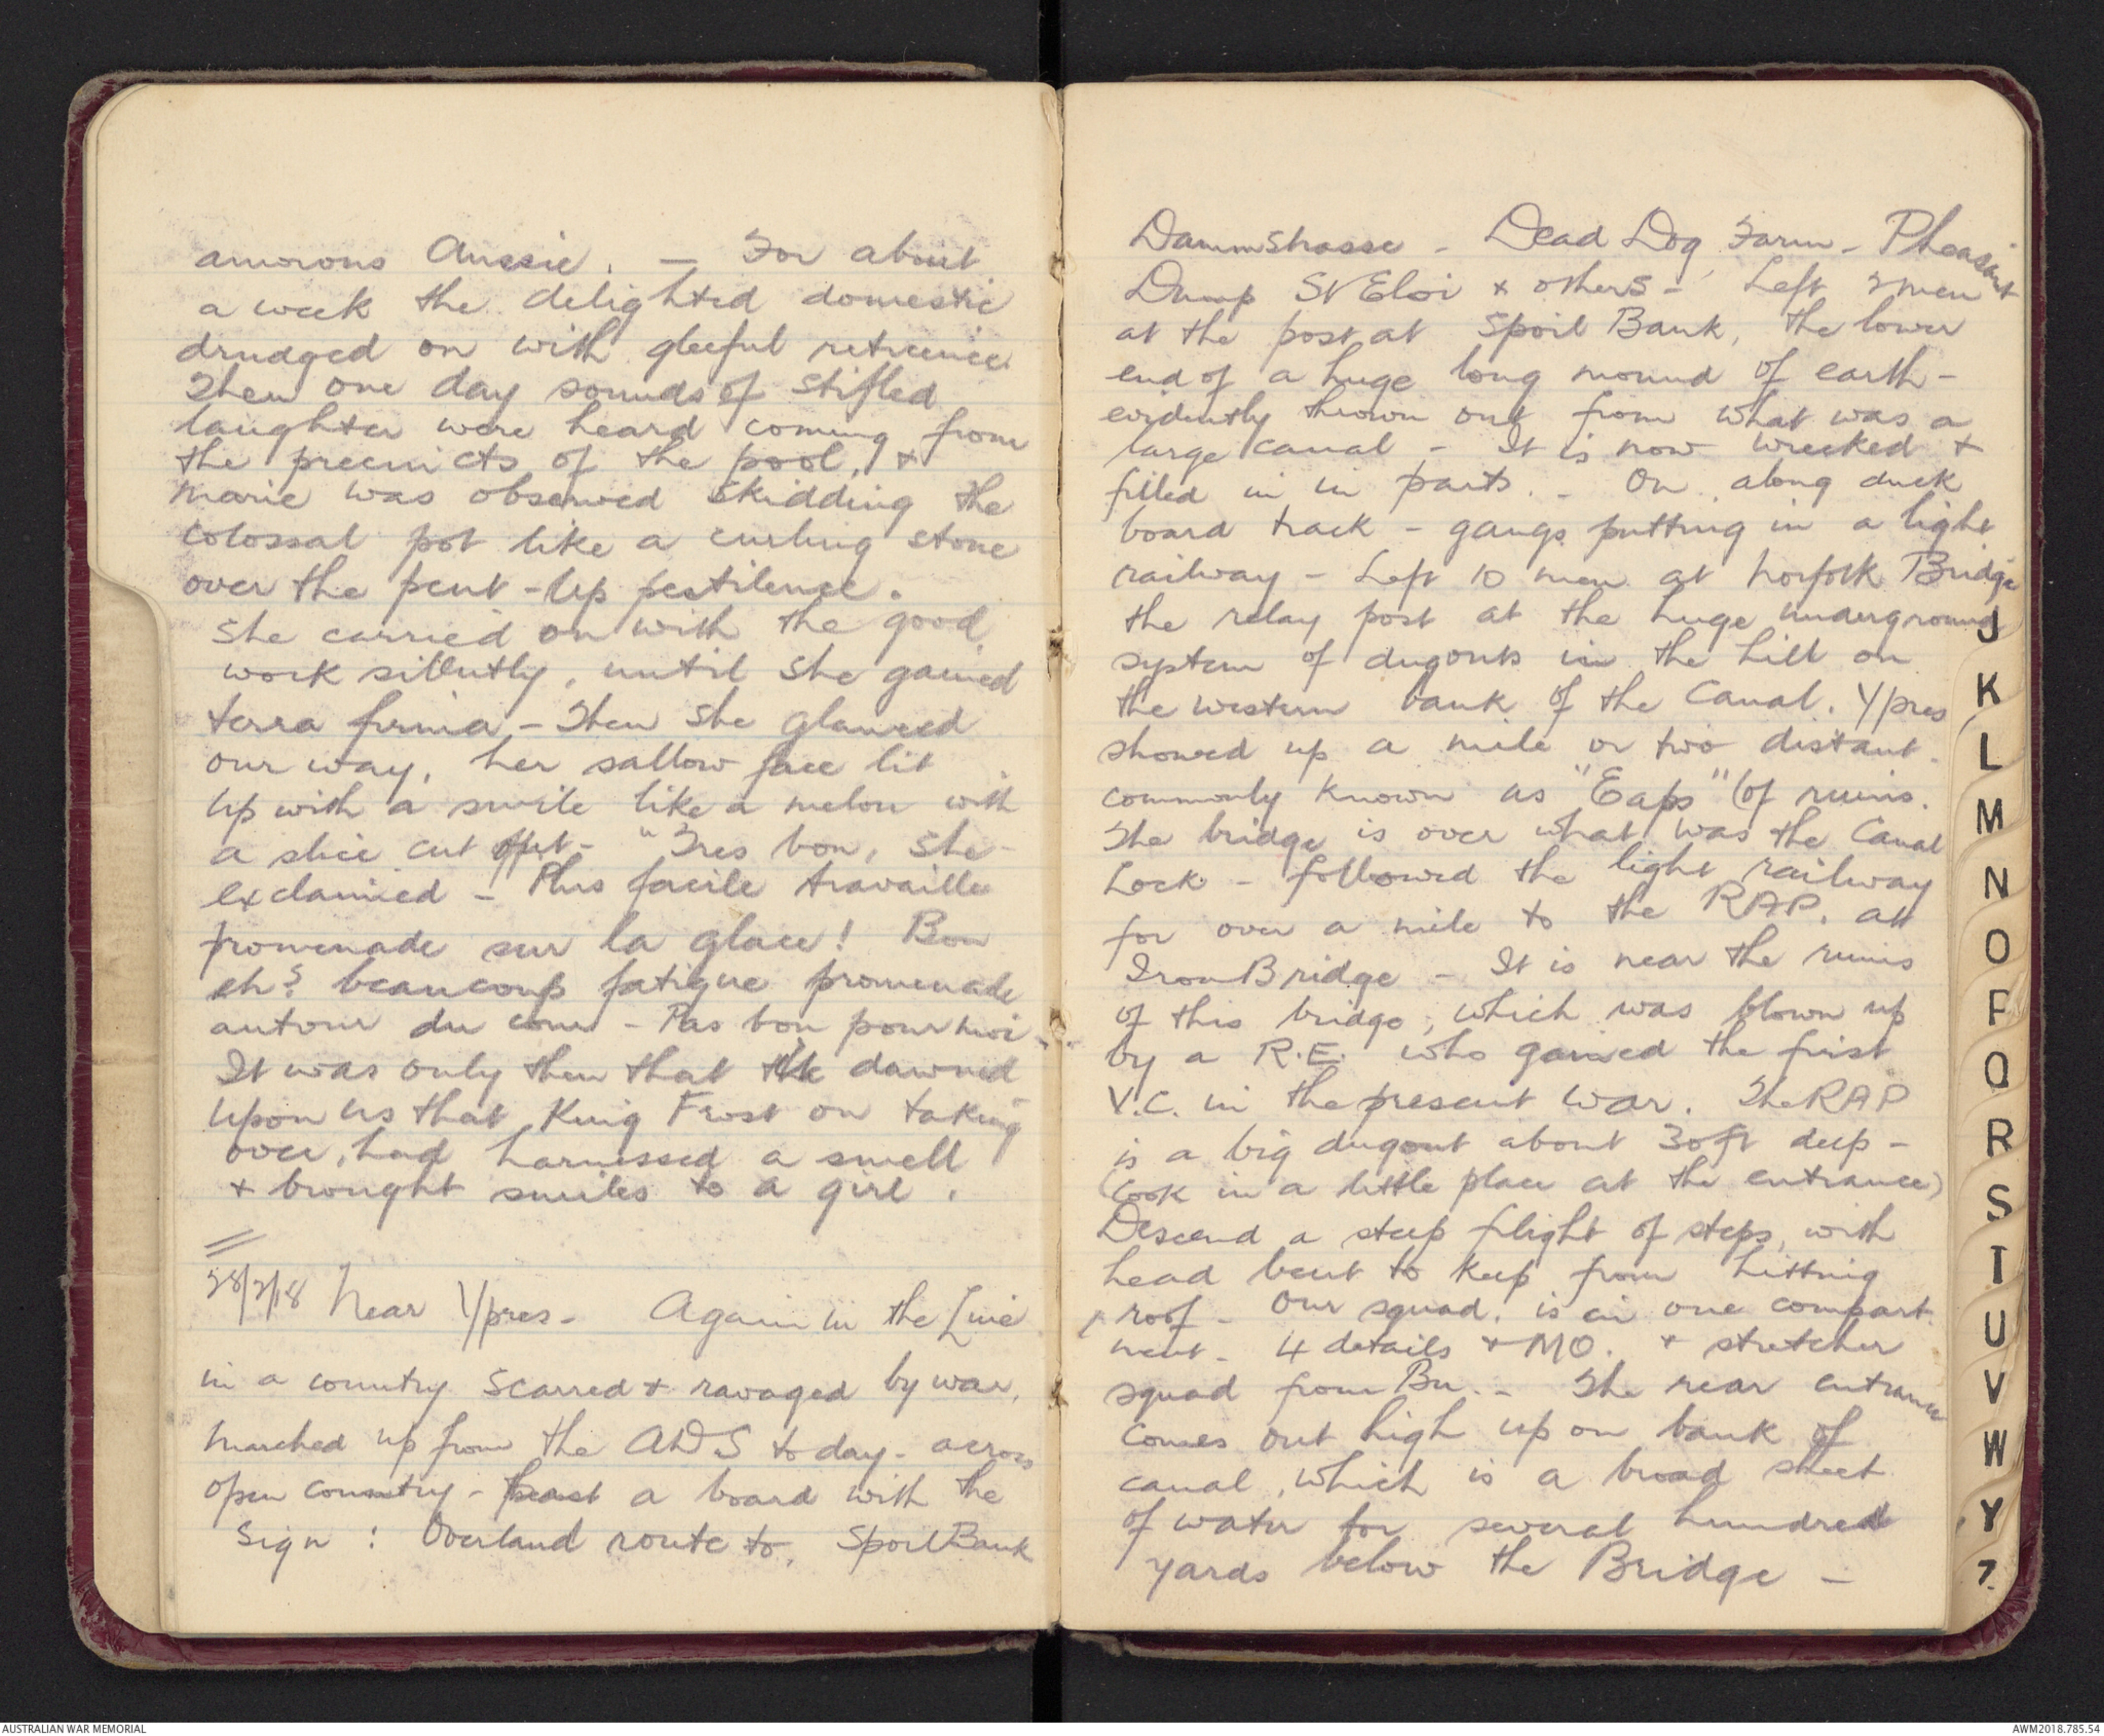 amorous Aussie. — For about
a week the delighted domestic
drudged on with gleeful reticence
Then one day sounds of stifled
laughter were heard coming from
the precincts of the pool, &
Marie was observed skidding the
colossal pot like a curling stone
over the pent-up pestilence.
She carried on with the good
work silently, until she gained
terra firma - Then she glanced
our way, her sallow face lit
up with a smile like a melon with
a slice cut out - "Tres bon, she
exclaimed - Plus facile travaille
promenade sur la glace! Bon
eh? beaucoup fatigue promenade
autour du cour - Pas bon pour moi -
It was only then that it dawned
upon us that King Frost on taking
over, had harnessed a smell
& brought smiles to a girl.
28/2/18 Near Ypres - Again in the Line
in a country scarred & ravaged by war.
Marched up from the ADS to day - across
open country - past a board with the
sign : Overland route to, Spoil Bank
Dammstrasse - Dead Dog Farm - Pheasant
Dump St Eloi & others - Left 2 men
at the post at Spoil Bank, the lower
end of a huge long mound of earth -
evidently thrown out from what was a
large canal - It is now wrecked &
filled in in parts. - On along duck
board track - gangs putting in a light
railway - Left 10 men at Norfolk Bridge
the relay post at the huge underground
system of dugouts in the hill on
the western bank of the Canal. Ypres
showed up a mile or two distant.
commonly known as "Eaps" (of ruins.
The bridge is over what was the Canal
Lock - followed the light railway
for over a mile to the RAP. at
Iron Bridge - It is near the ruins
of this bridge, which was blown up
by a R.E. who gained the first
V.C. in the present war. The RAP
is a big dugout about 30ft deep -
(Cook in a little place at the entrance)
Descend a steep flight of steps, with
head bent to keep from hitting
roof - Our squad is in one compart
ment - 4 details & MO. & stretcher
squad from Bn. - The rear entrance
comes out high up on bank of
canal, which is a broad sheet
of water for several hundred
yards below the Bridge -
J
K
L
M
N
O
P
Q
R
S
T
U
V
W
Y
Z
AUSTRALIAN WAR MEMORIAL
AWM2018.785.54